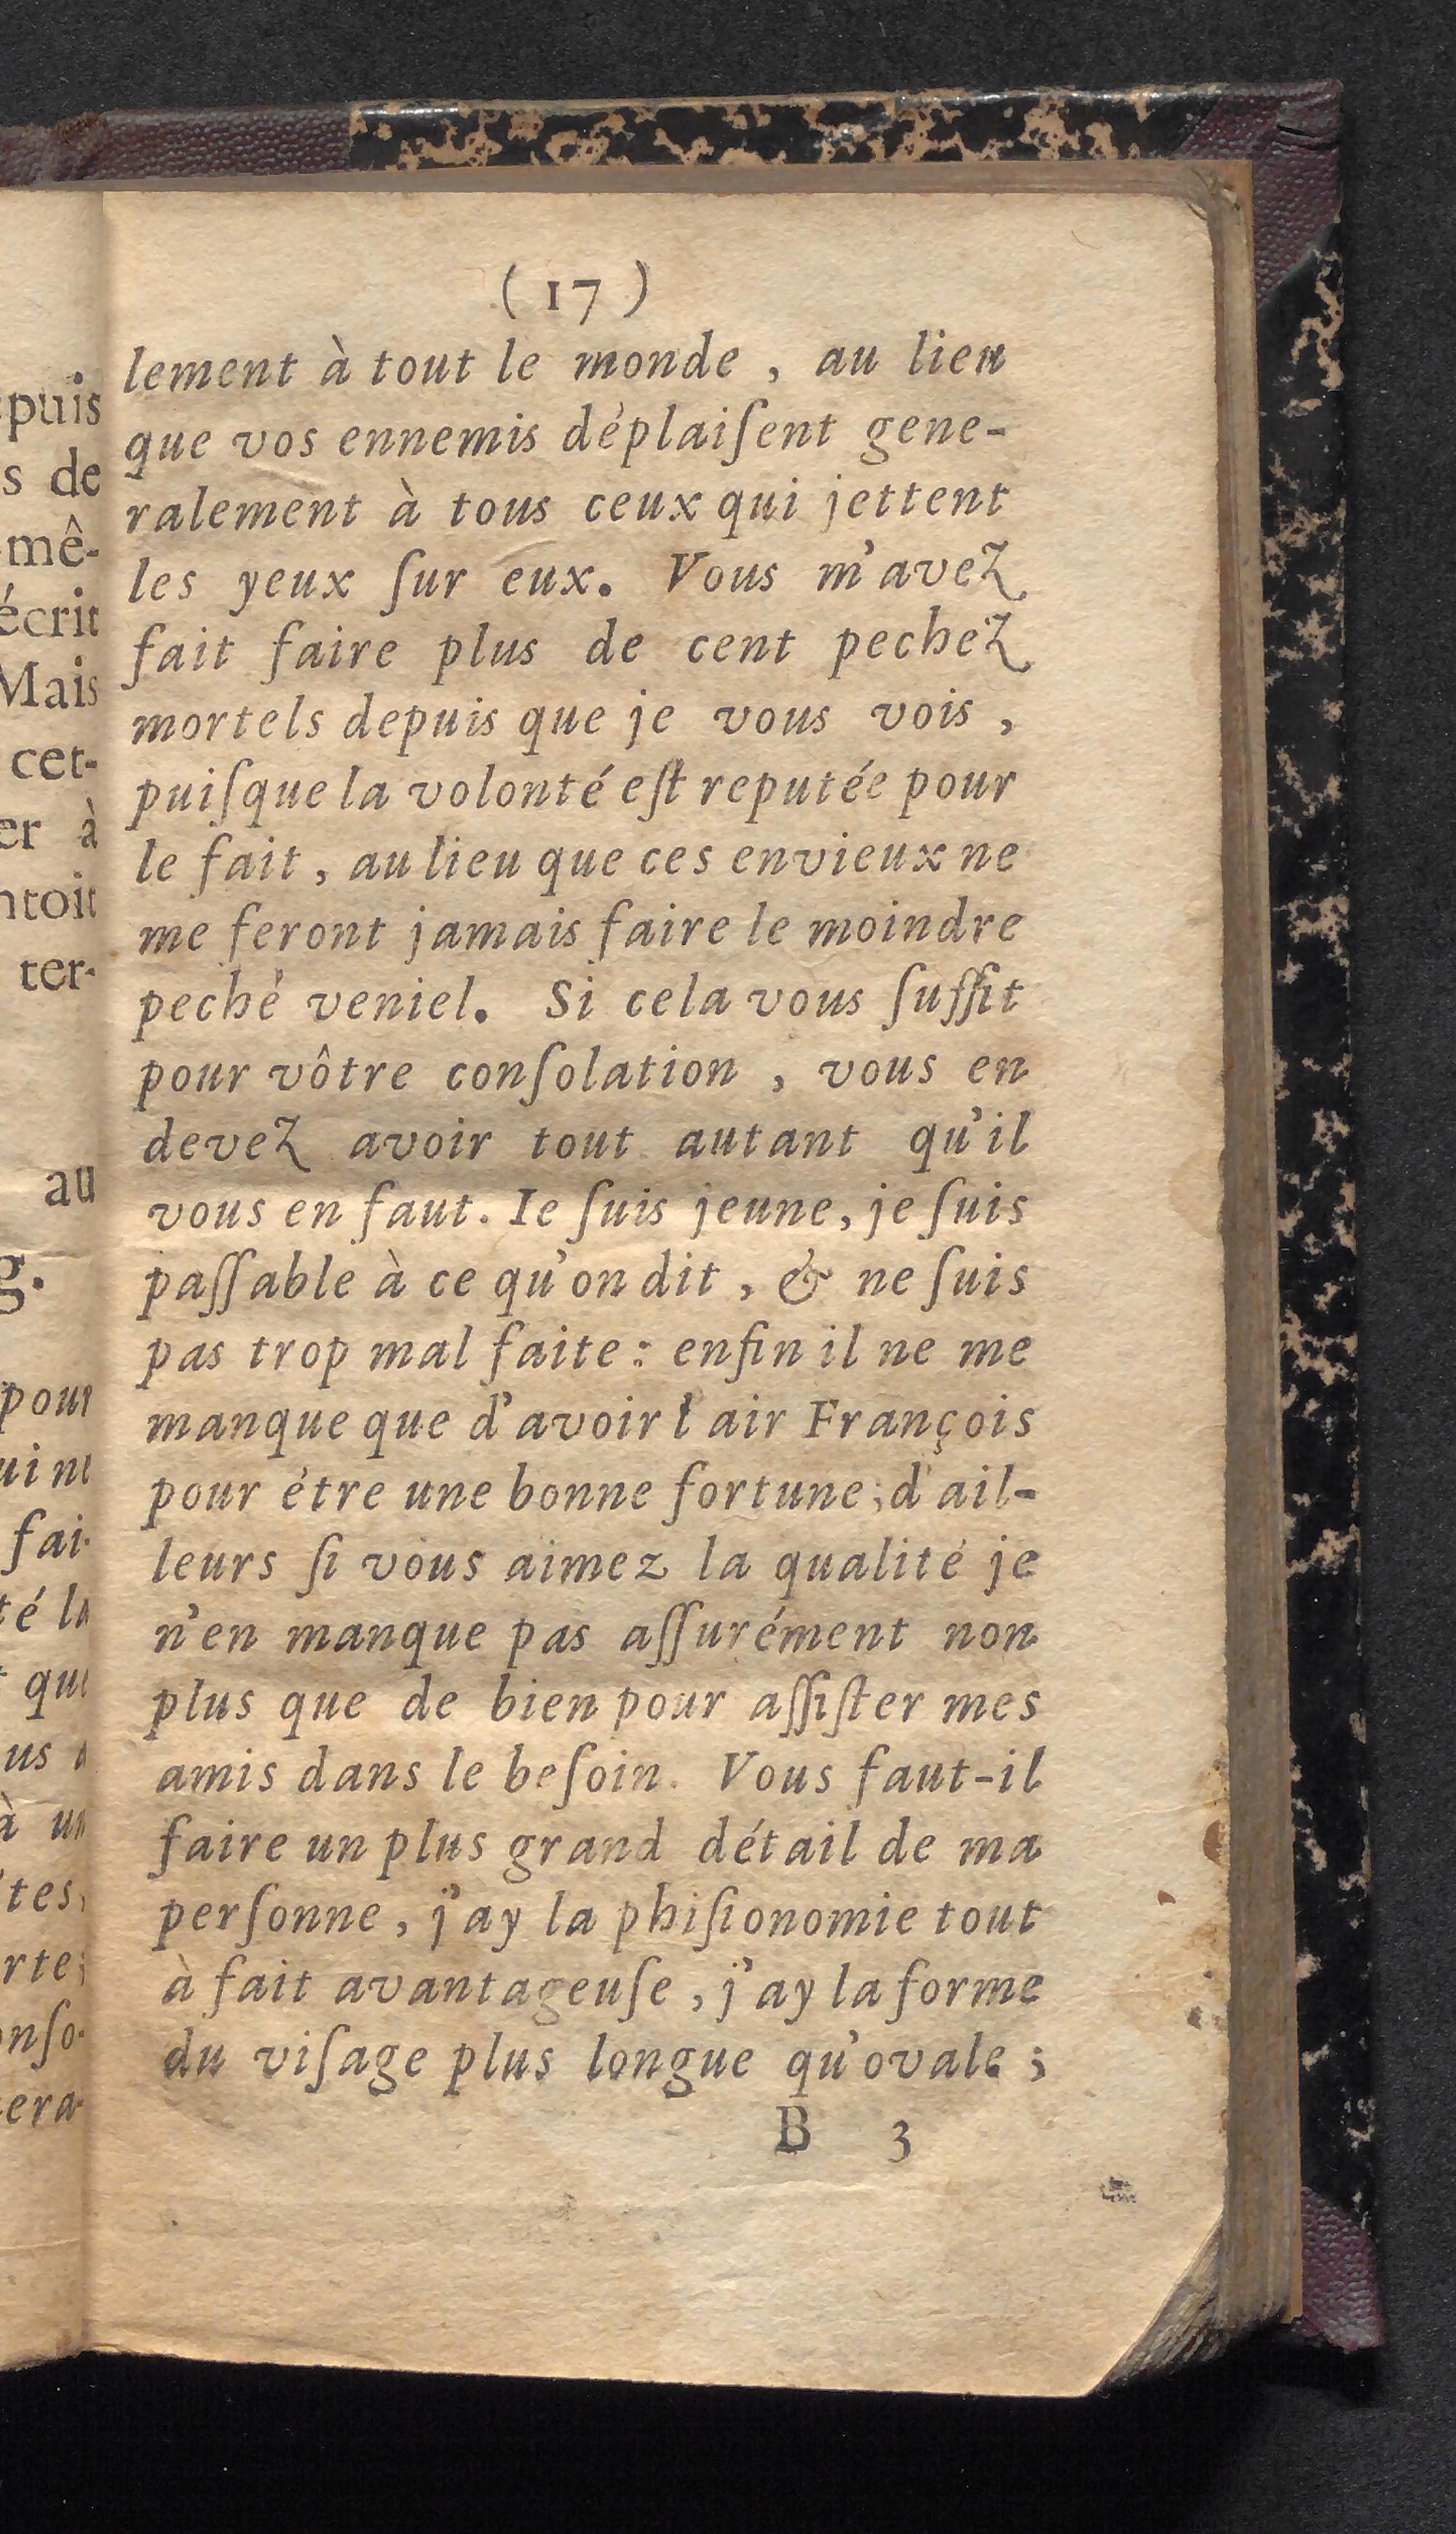 ( 17 )
lement à tout le monde , au lieu
que vos ennemis déplaiſent gene-
ralement à tous ceux qui jettent
les yeux ſur eux. Vous m'avez
fait faire plus de cent pechez
mortels depuis que je vous vois ,
puiſque la volonté eſt reputée pour
le fait , au lieu que ces envieux ne
me feront jamais faire le moindre
peché veniel. Si cela vous ſuffit
pour vôtre conſolation , vous en
devez avoir tout autant qu'il
vous en faut. Ie ſuis jeune, je ſuis
paſſable à ce qu'on dit , & ne ſuis
pas trop mal faite : enfin il ne me
manque que d'avoir l'air François
pour étre une bonne fortune ; d'ail-
leurs ſi vous aimez la qualité je
n'en manque pas aſſurément non
plus que de bien pour aſſiſter mes
amis dans le beſoin. Vous faut-il
faire un plus grand détail de ma
perſonne , j'ay la phiſionomie tout
à fait avantageuſe , j'ay la forme
du viſage plus longue qu'ovale ;
B 3